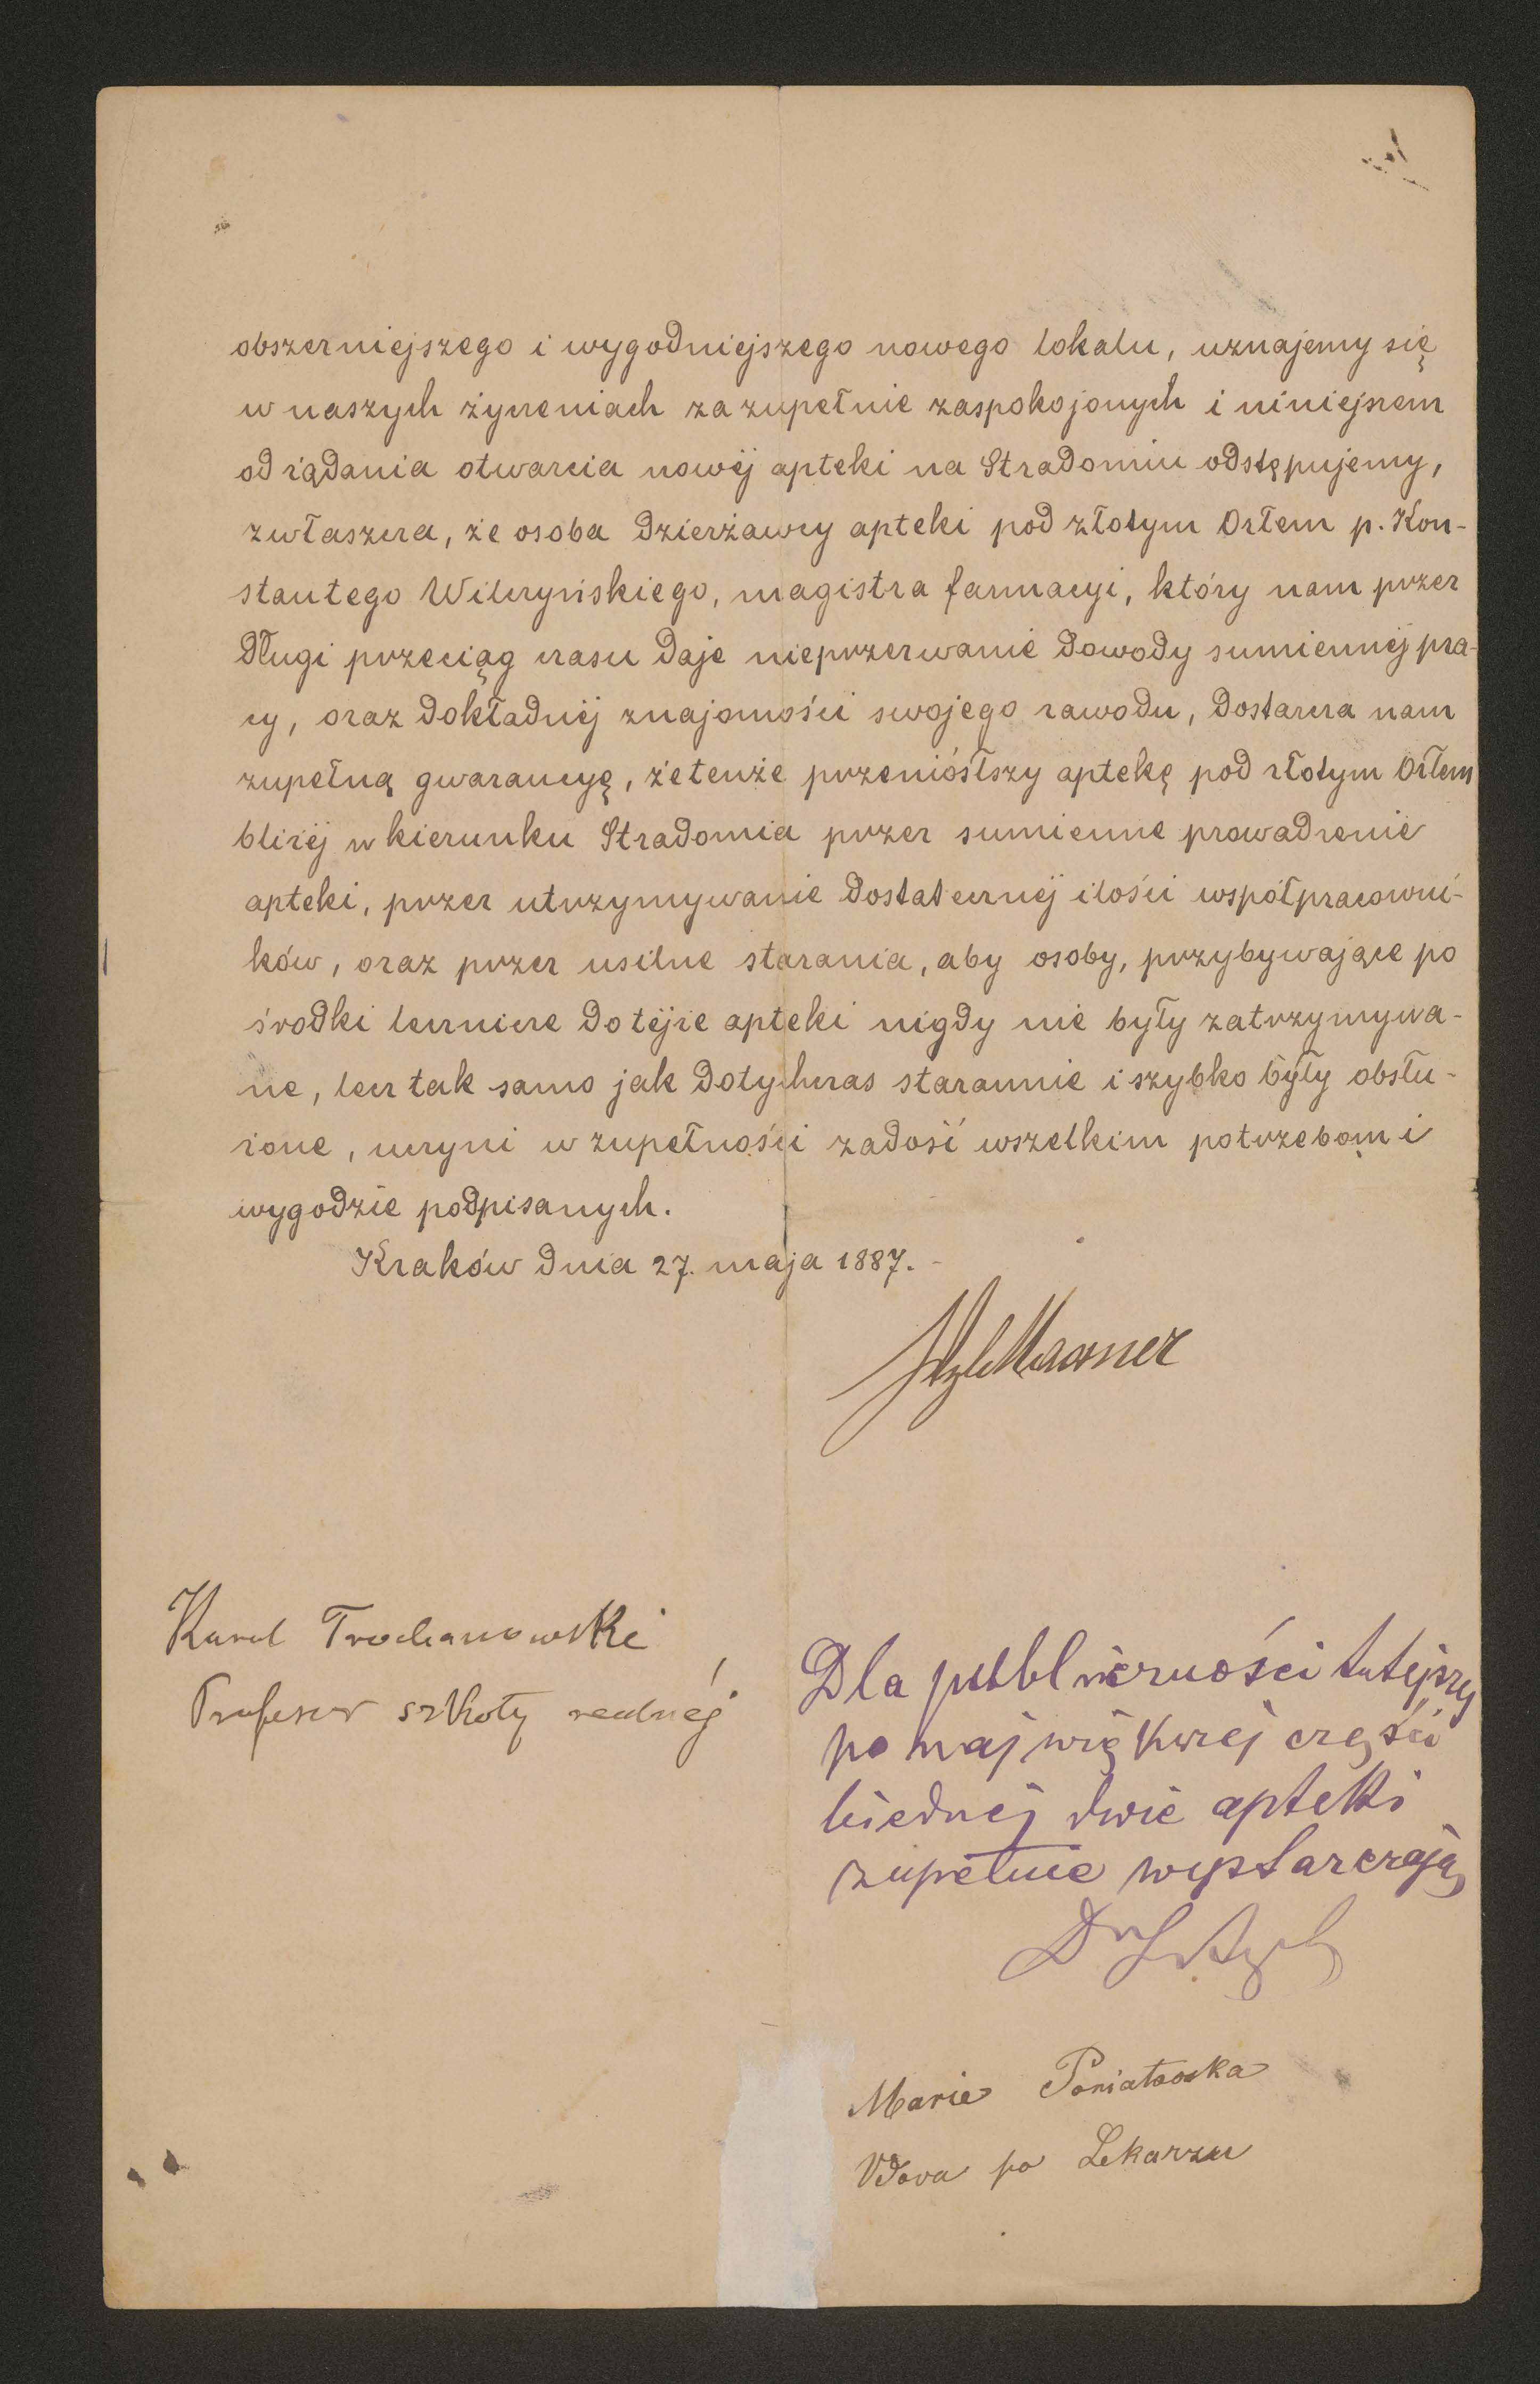 obszerniejszego i wygodniejszego nowego lokalu, uznajemy się
w naszych życzeniach za zupełnie zaspokojonych i niniejszem
od żądania otwarcia nowéj apteki na Stradomiu odstępujemy,
zwłaszcza, że osoba dzierżawcy apteki pod złotym Orłem p. Kon-
stantego Wilczyńskiego, magistra farmacyi, który nam przez
długi przeciąg czasu daje nieprzerwanie dowody sumiennéj pra-
cy, oraz dokładnéj znajomości swojego zawodu, dostarcza nam
zupełną gwarancyę, że tenże przeniósłszy aptekę pod złotym Orłem
bliżéj w kierunku Stradomia przez sumienne prowadzenie
apteki, przez utrzymywanie dostatecznéj ilości współpracowni-
ków, oraz przez usilne starania, aby osoby, przybywające po
środki lecznicze do téjże apteki nigdy nie były zatrzymywa-
ne, lecz tak samo jak dotychczas starannie i szybko były obsłu-
żone, uczyni w zupełności zadość wszelkim potrzebom i
wygodzie podpisanych.
Kraków dnia 27. maja 1887.
Karol Trochanowski
Profesor szkoły realnéj
Dla publiczności tutejszej
po największej części
biednej dwie apteki
zupełnie wystarczają
Dr
Marie Poniatowska
Vdova po Lekarzu